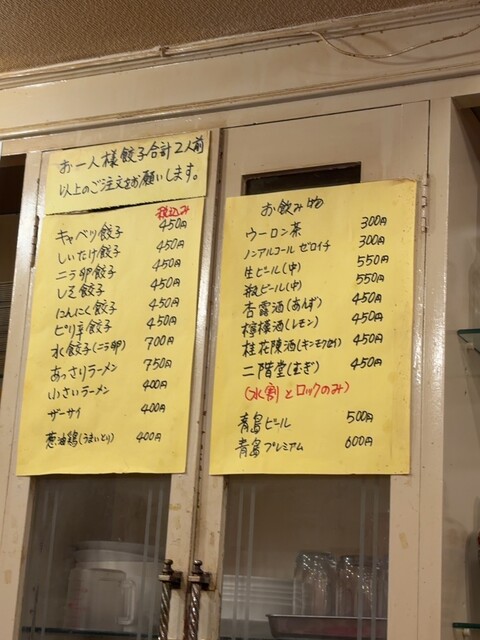 お一人様餃子合計2人前
以上のご注文をお願いします。
税込み
キャベツ餃子 450円
しいたけ餃子 450円
ニラ卵餃子 450円
しそ餃子 450円
にんにく餃子 450円
ピリ辛餃子 450円
水餃子(ニラ卵) 700円
あっさりラーメン 750円
小さいラーメン 400円
ザーサイ 400円
葱油鶏(うまいとり) 400円
お飲み物
ウーロン茶 300円
ノンアルコール ゼロイチ 300円
生ビール(中) 550円
瓶ビール(中) 550円
杏露酒(あんず) 450円
檸檬酒(レモン) 450円
桂花陳酒(キンモクセイ) 450円
二階堂(むぎ) 450円
(水割とロックのみ)
青島ビール 500円
青島プレミアム 600円